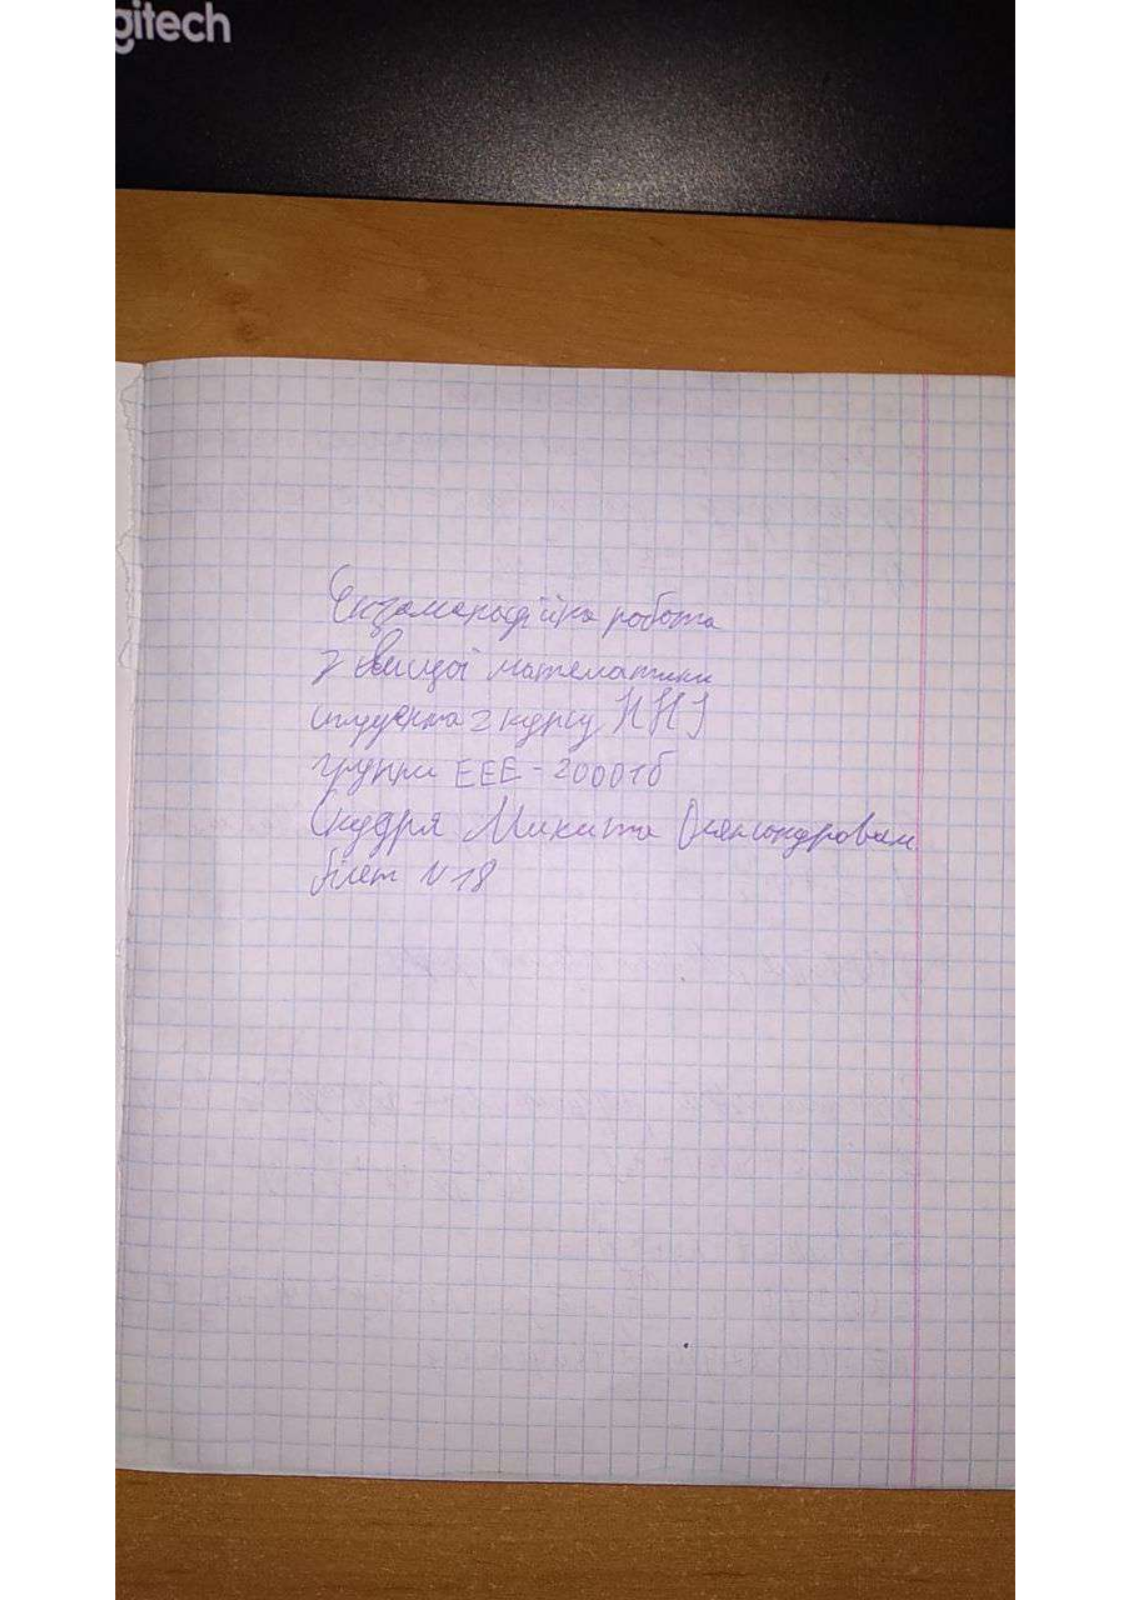 gitech
Екзаменаційна робота
з Вищої математики
студента 2 курсу ННІ
групи ЕЕЕ-20001б
Скудря Микита Олександрович
білет N18